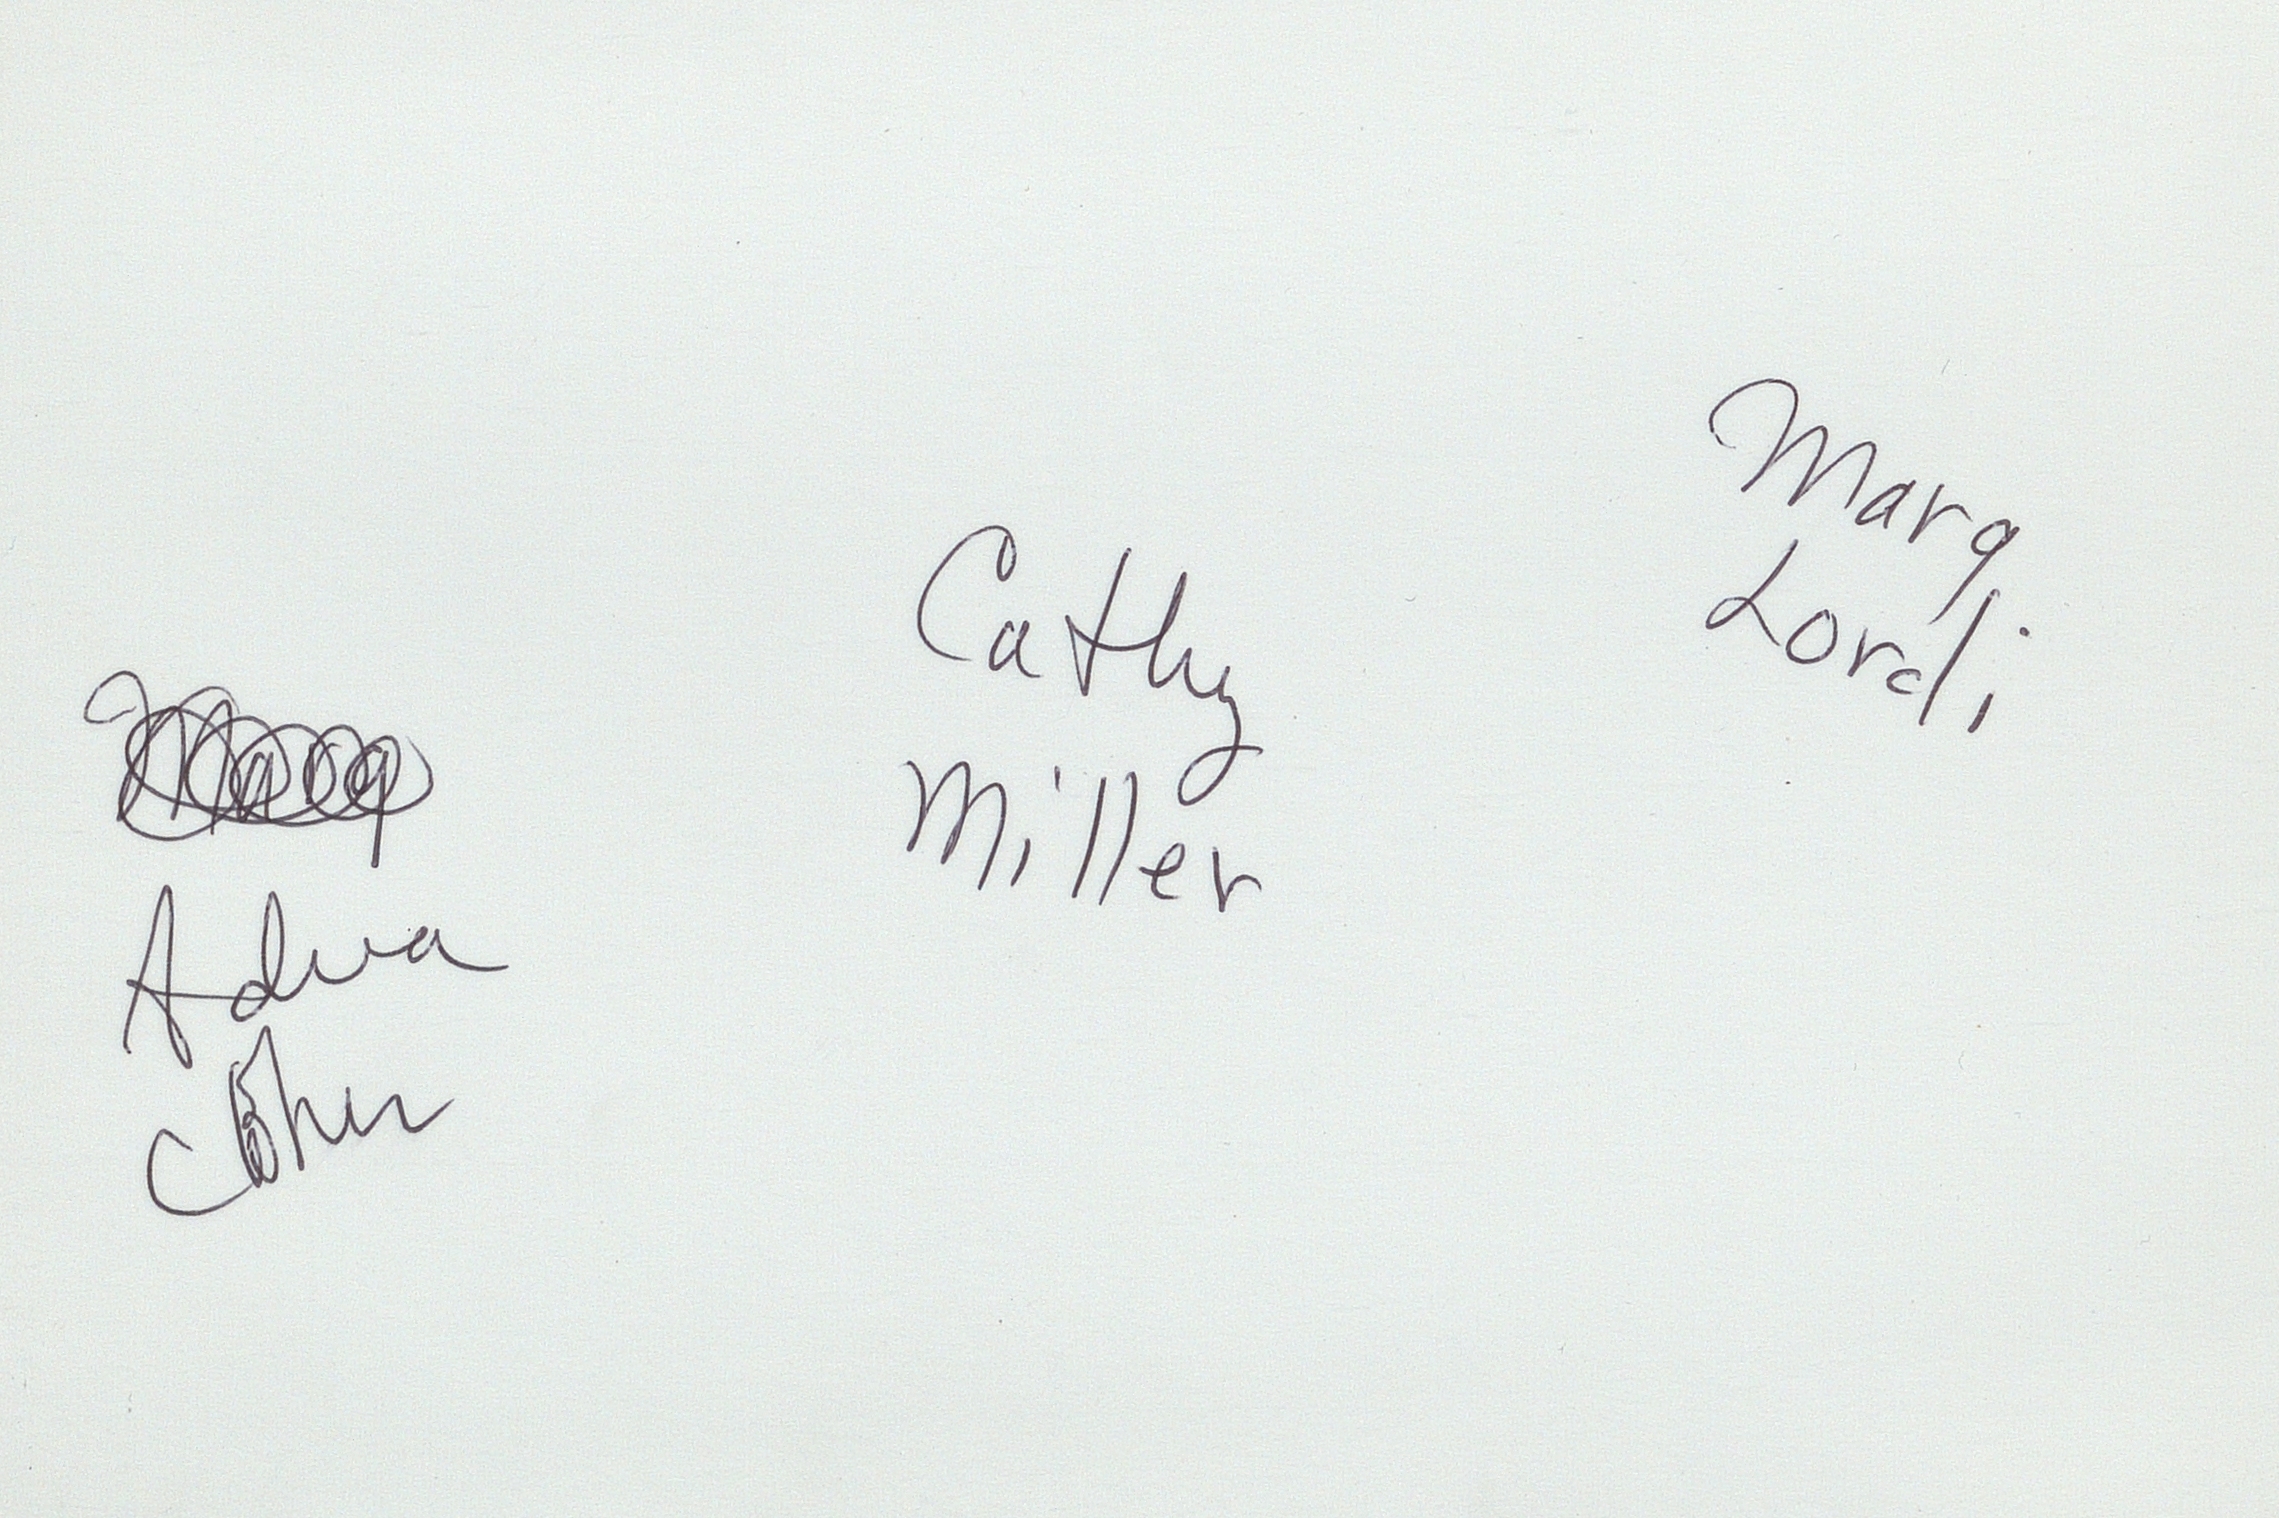 Marg
Lordi
Cathy
Miller
Marg
Adva
Cohen